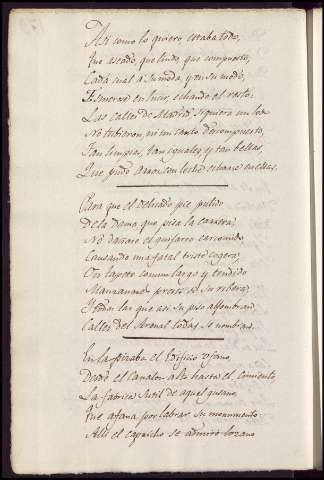 Asi como lo quiero estaba todo,
Que aseado, que lindo, que compuesto,
Cada cual a su moda, y en su modo,
Esmerose en lucir, echando el resto:
Las calles de Madrid siquiera un lodo
No tubieron, ni un canto descompuesto,
Tan limpias, tan yguales y tan bellas,
Que pudo Arroz con leche echarse en ellas.
Para que el delicado pie pulido
De la Dama, que pisa la carrera,
No dañase el guijarro carcomido
Causando una fatal triste cogera,
Por tapete comun largo y tendido
Manzanares prestó de su ribera,
Y todas las que asi su piso alfombran
Calles del Arenal todas se nombran.
En la fixaba el Edificio ufano,
Desde el Canalon alto hasta el cimiento,
La fabrica sutil de aquel gusano,
Que afana por labrar su monumento:
Alli el capricho se admiró lozano